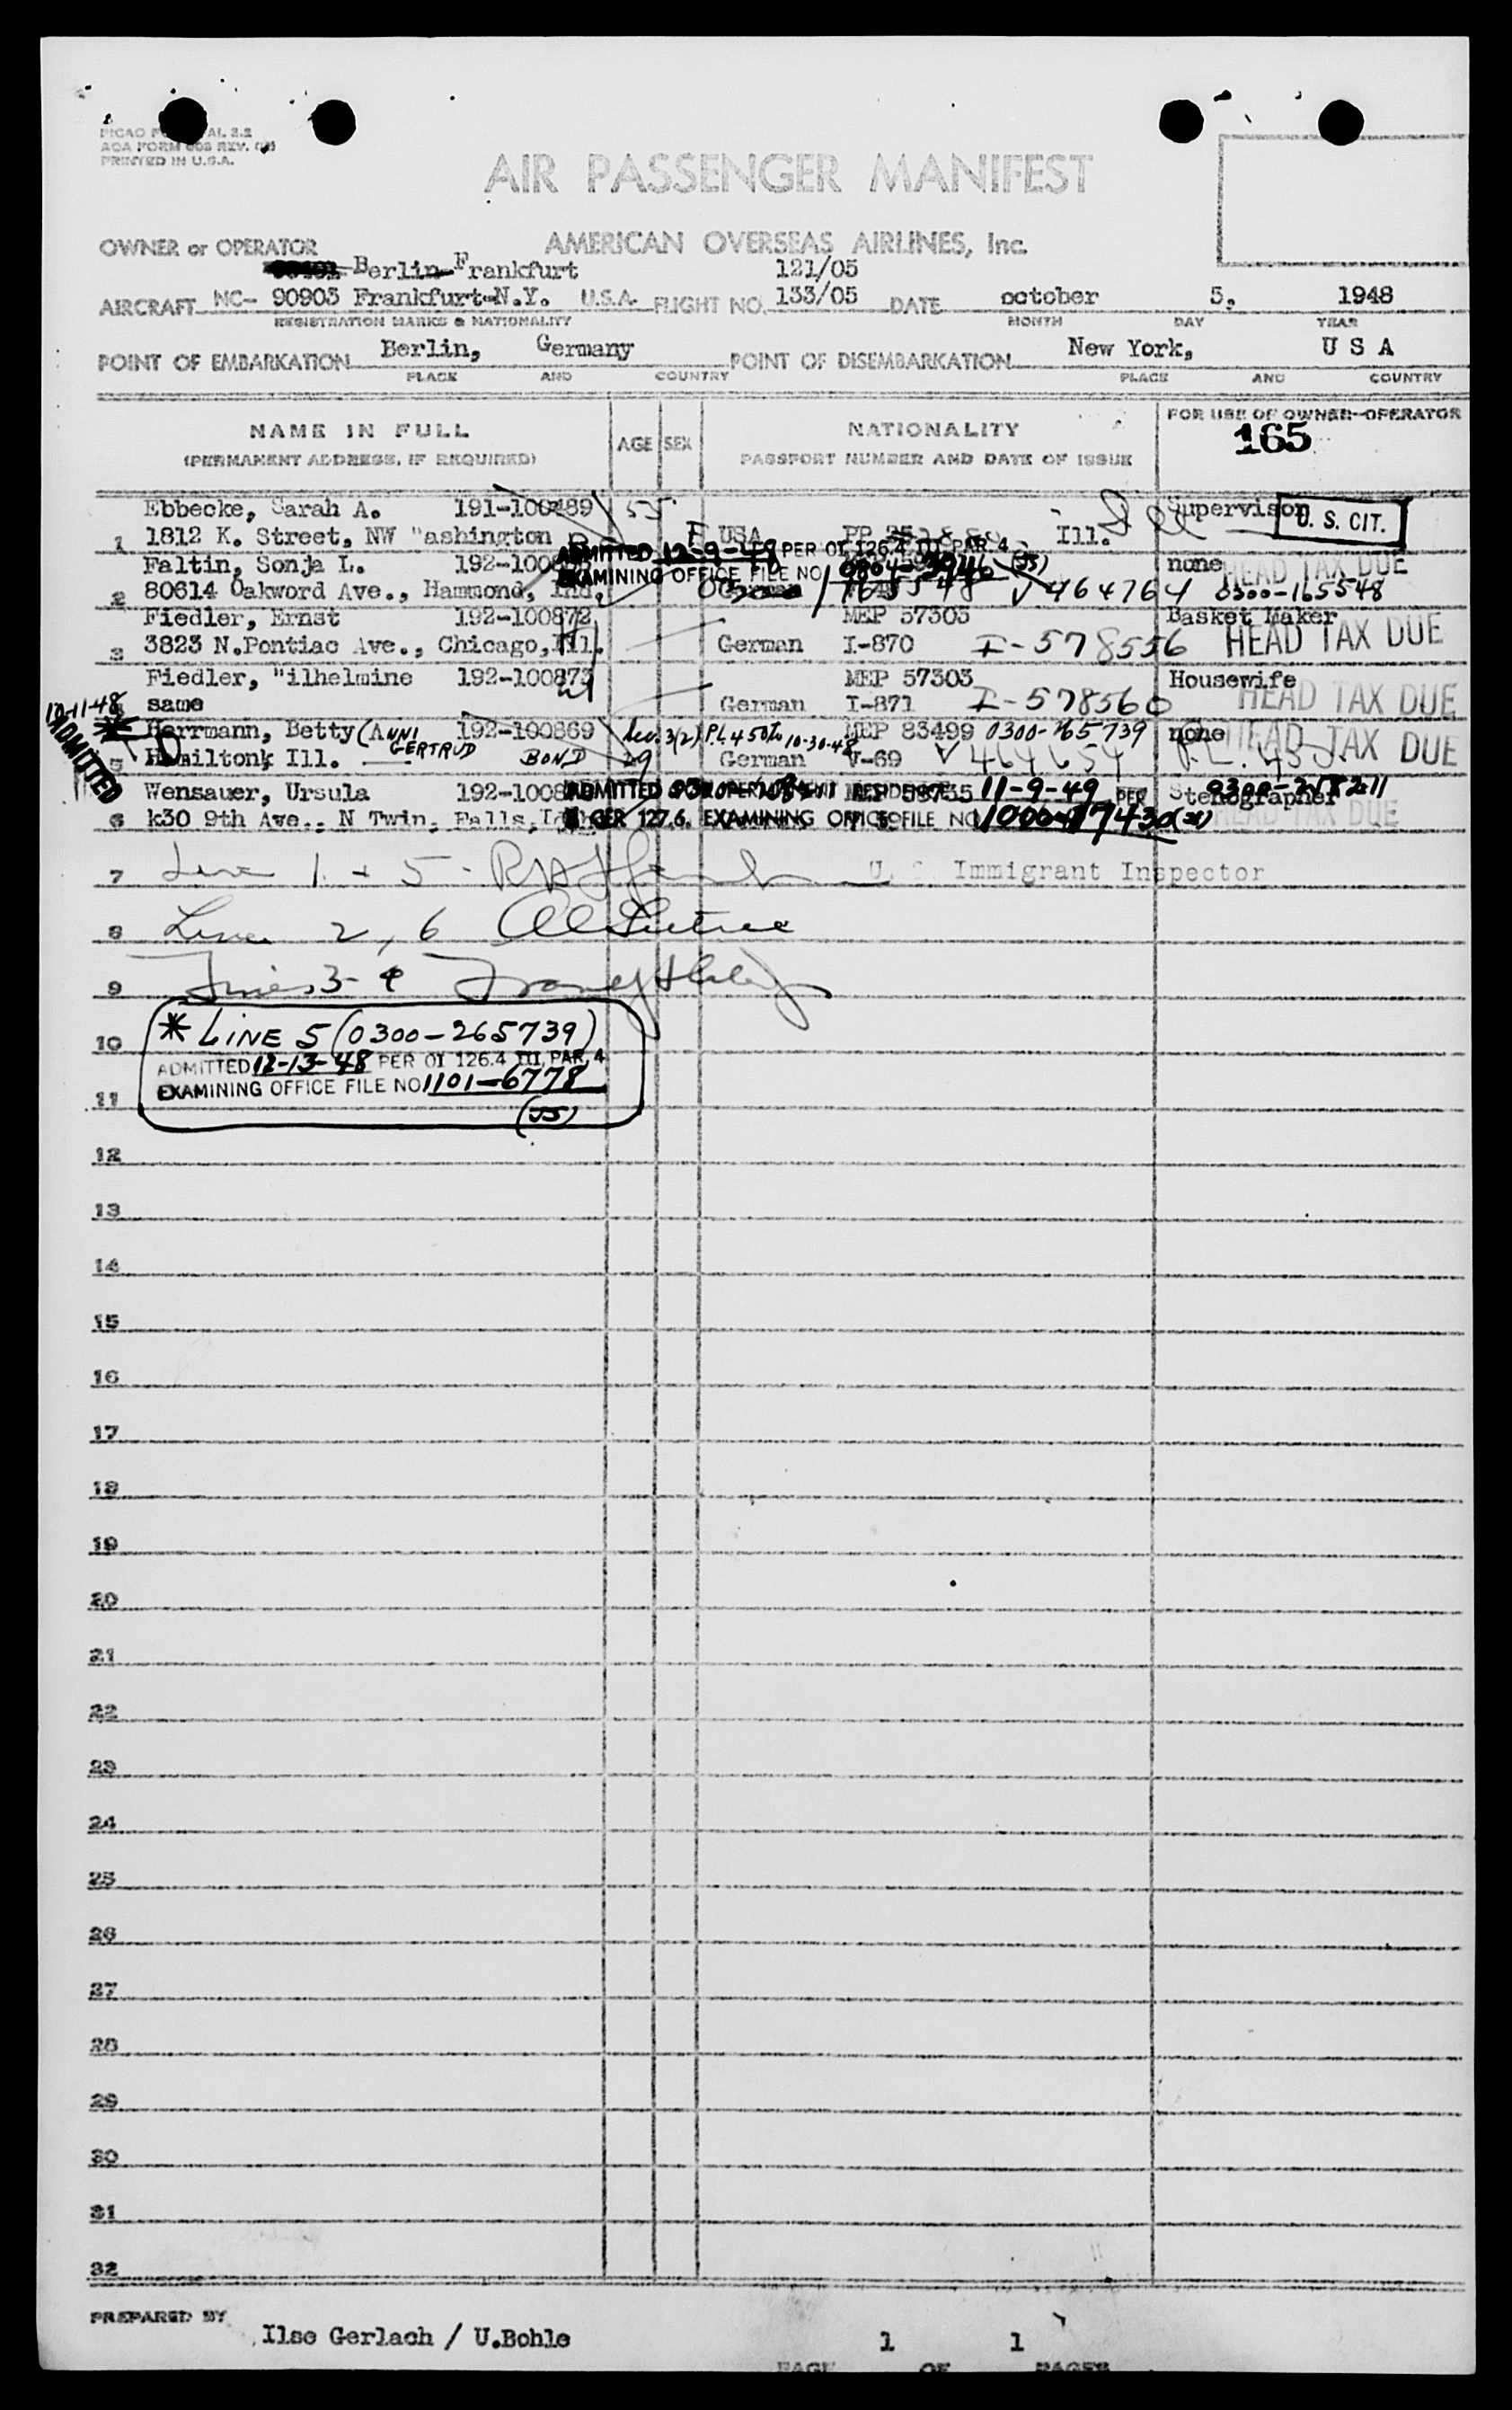 AOA FORM
PRINTED IN U.S.A.
AIR PASSENGER MANIFEST
OWNER or OPERATOR AMERICAN OVERSEAS AIRLINES, Inc.
Berlin-Frankfurt 121/05
AIRCRAFT NC- 90903 Frankfurt-N.Y. U.S.A. FLIGHT NO. 133/05 DATE october 5, 1948
REGISTRATION MARKS & NATIONALITY MONTH DAY YEAR
POINT OF EMBARKATION Berlin, Germany POINT OF DISEMBARKATION New York, U S A
PLACE AND COUNTRY PLACE AND COUNTRY
NAME IN FULL AGE SEX NATIONALITY FOR USE OF OWNER-OPERATOR
(PERMANENT ADDRESS, IF REQUIRED) PASSPORT NUMBER AND DATE OF ISSUE 165
Ebbecke, Sarah A. 191-100489 55 Supervisor U. S. CIT.
1 1812 K. Street, NW "ashington F USA PP Ill.
ADMITTED 12-9-48 PER OI 126.4 III PAR. 4
Faltin, Sonja L. 192-100 none HEAD TAX DUE
EXAMINING OFFICE FILE NO 0904-3946 (JS)
2 80614 Oakword Ave., Hammond, Ind. German 464764 0300-165548
Fiedler, Ernst 192-100872 MEP 57303 Basket Maker
3 3823 N.Pontiac Ave., Chicago, Ill. German I-870 I-578556 HEAD TAX DUE
Fiedler, "ilhelmine 192-100873 MEP 57303 Housewife
same German I-871 I-578560 HEAD TAX DUE
10-11-48 ADMITTED
* Herrmann, Betty (ANNI GERTRUD BOND 192-100869 Sec. 3(2) P.L. 450 to 10-30-48 MEP 83499 0300-265739 none
5 Hamilton, Ill. 29 German V-69 464654 HEAD TAX DUE
Wensauer, Ursula 192-100 ADMITTED RESIDENCE 11-9-49 PER Stenographer
6 k30 9th Ave., N Twin, Falls, CER 127.6. EXAMINING OFFICE FILE NO 1000-17430 HEAD TAX DUE
7 Line 1 + 5 - U. S. Immigrant Inspector
8 Line 2, 6
9 Lines 3-4
10 * LINE 5 (0300-265739)
ADMITTED 12-13-48 PER OI 126.4 III, PAR. 4
EXAMINING OFFICE FILE NO 1101-6778
11 (JS)
12
13
14
15
16
17
18
19
20
21
22
23
24
25
26
27
28
29
30
31
32
PREPARED BY Ilse Gerlach / U.Bohle 1 1
PAGE OF PAGES